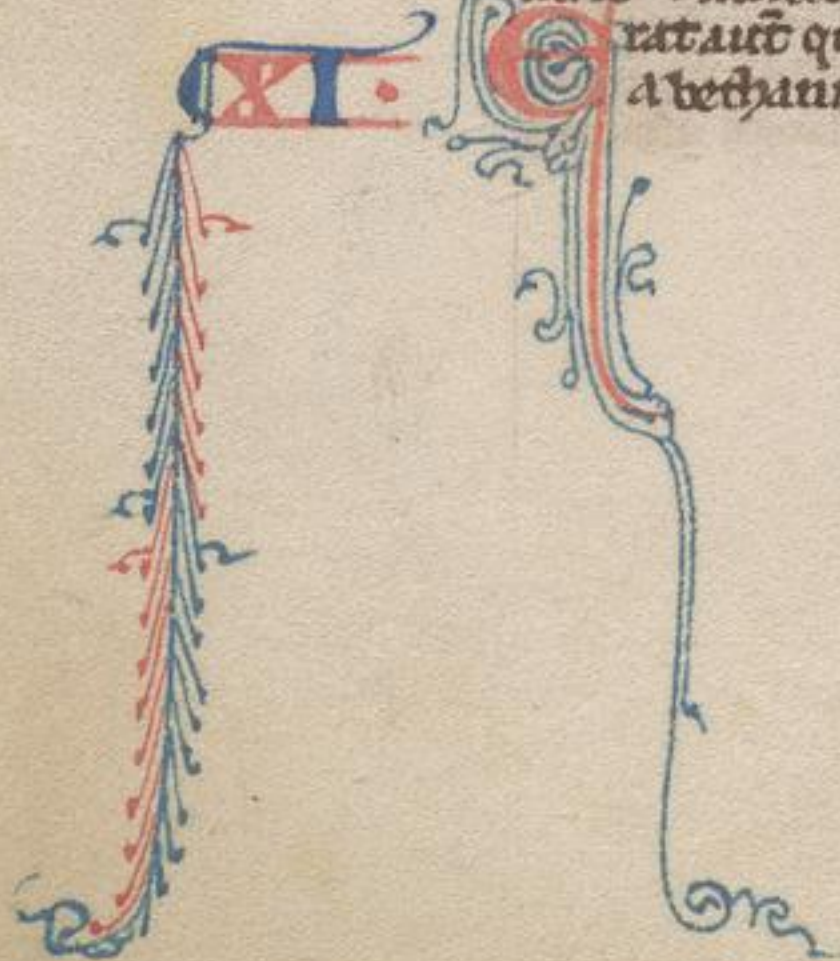 XI.
Erat aut̄ qu
a bethani